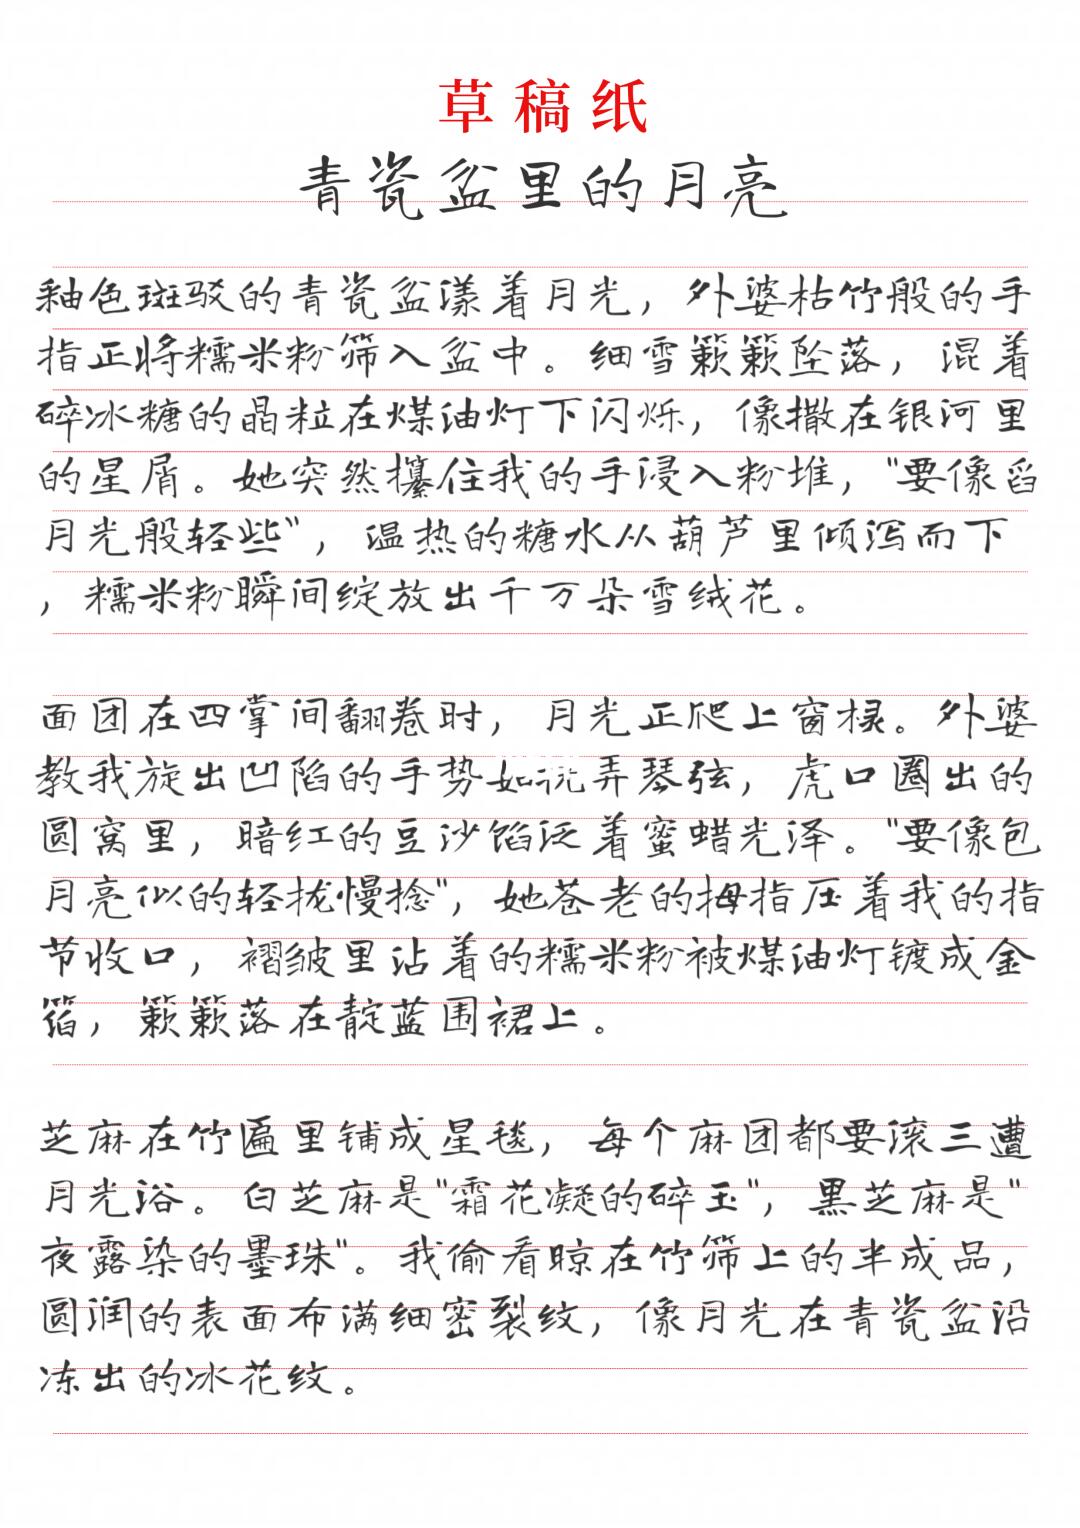 草稿纸
青瓷盆里的月亮
釉色斑驳的青瓷盆漾着月光，外婆枯竹般的手
指正将糯米粉筛入盆中。细雪簌簌坠落，混着
碎冰糖的晶粒在煤油灯下闪烁，像撒在银河里
的星屑。她突然攥住我的手浸入粉堆，"要像舀
月光般轻些"，温热的糖水从葫芦里倾泻而下
，糯米粉瞬间绽放出千万朵雪绒花。
面团在四掌间翻卷时，月光正爬上窗棂。外婆
教我旋出凹陷的手势如抚弄琴弦，虎口圈出的
圆窝里，暗红的豆沙馅泛着蜜蜡光泽。"要像包
月亮似的轻拢慢捻"，她苍老的拇指压着我的指
节收口，褶皱里沾着的糯米粉被煤油灯镀成金
箔，簌簌落在靛蓝围裙上。
芝麻在竹匾里铺成星毯，每个麻团都要滚三遭
月光浴。白芝麻是"霜花凝的碎玉"，黑芝麻是"
夜露染的墨珠"。我偷看晾在竹筛上的半成品，
圆润的表面布满细密裂纹，像月光在青瓷盆沿
冻出的冰花纹。